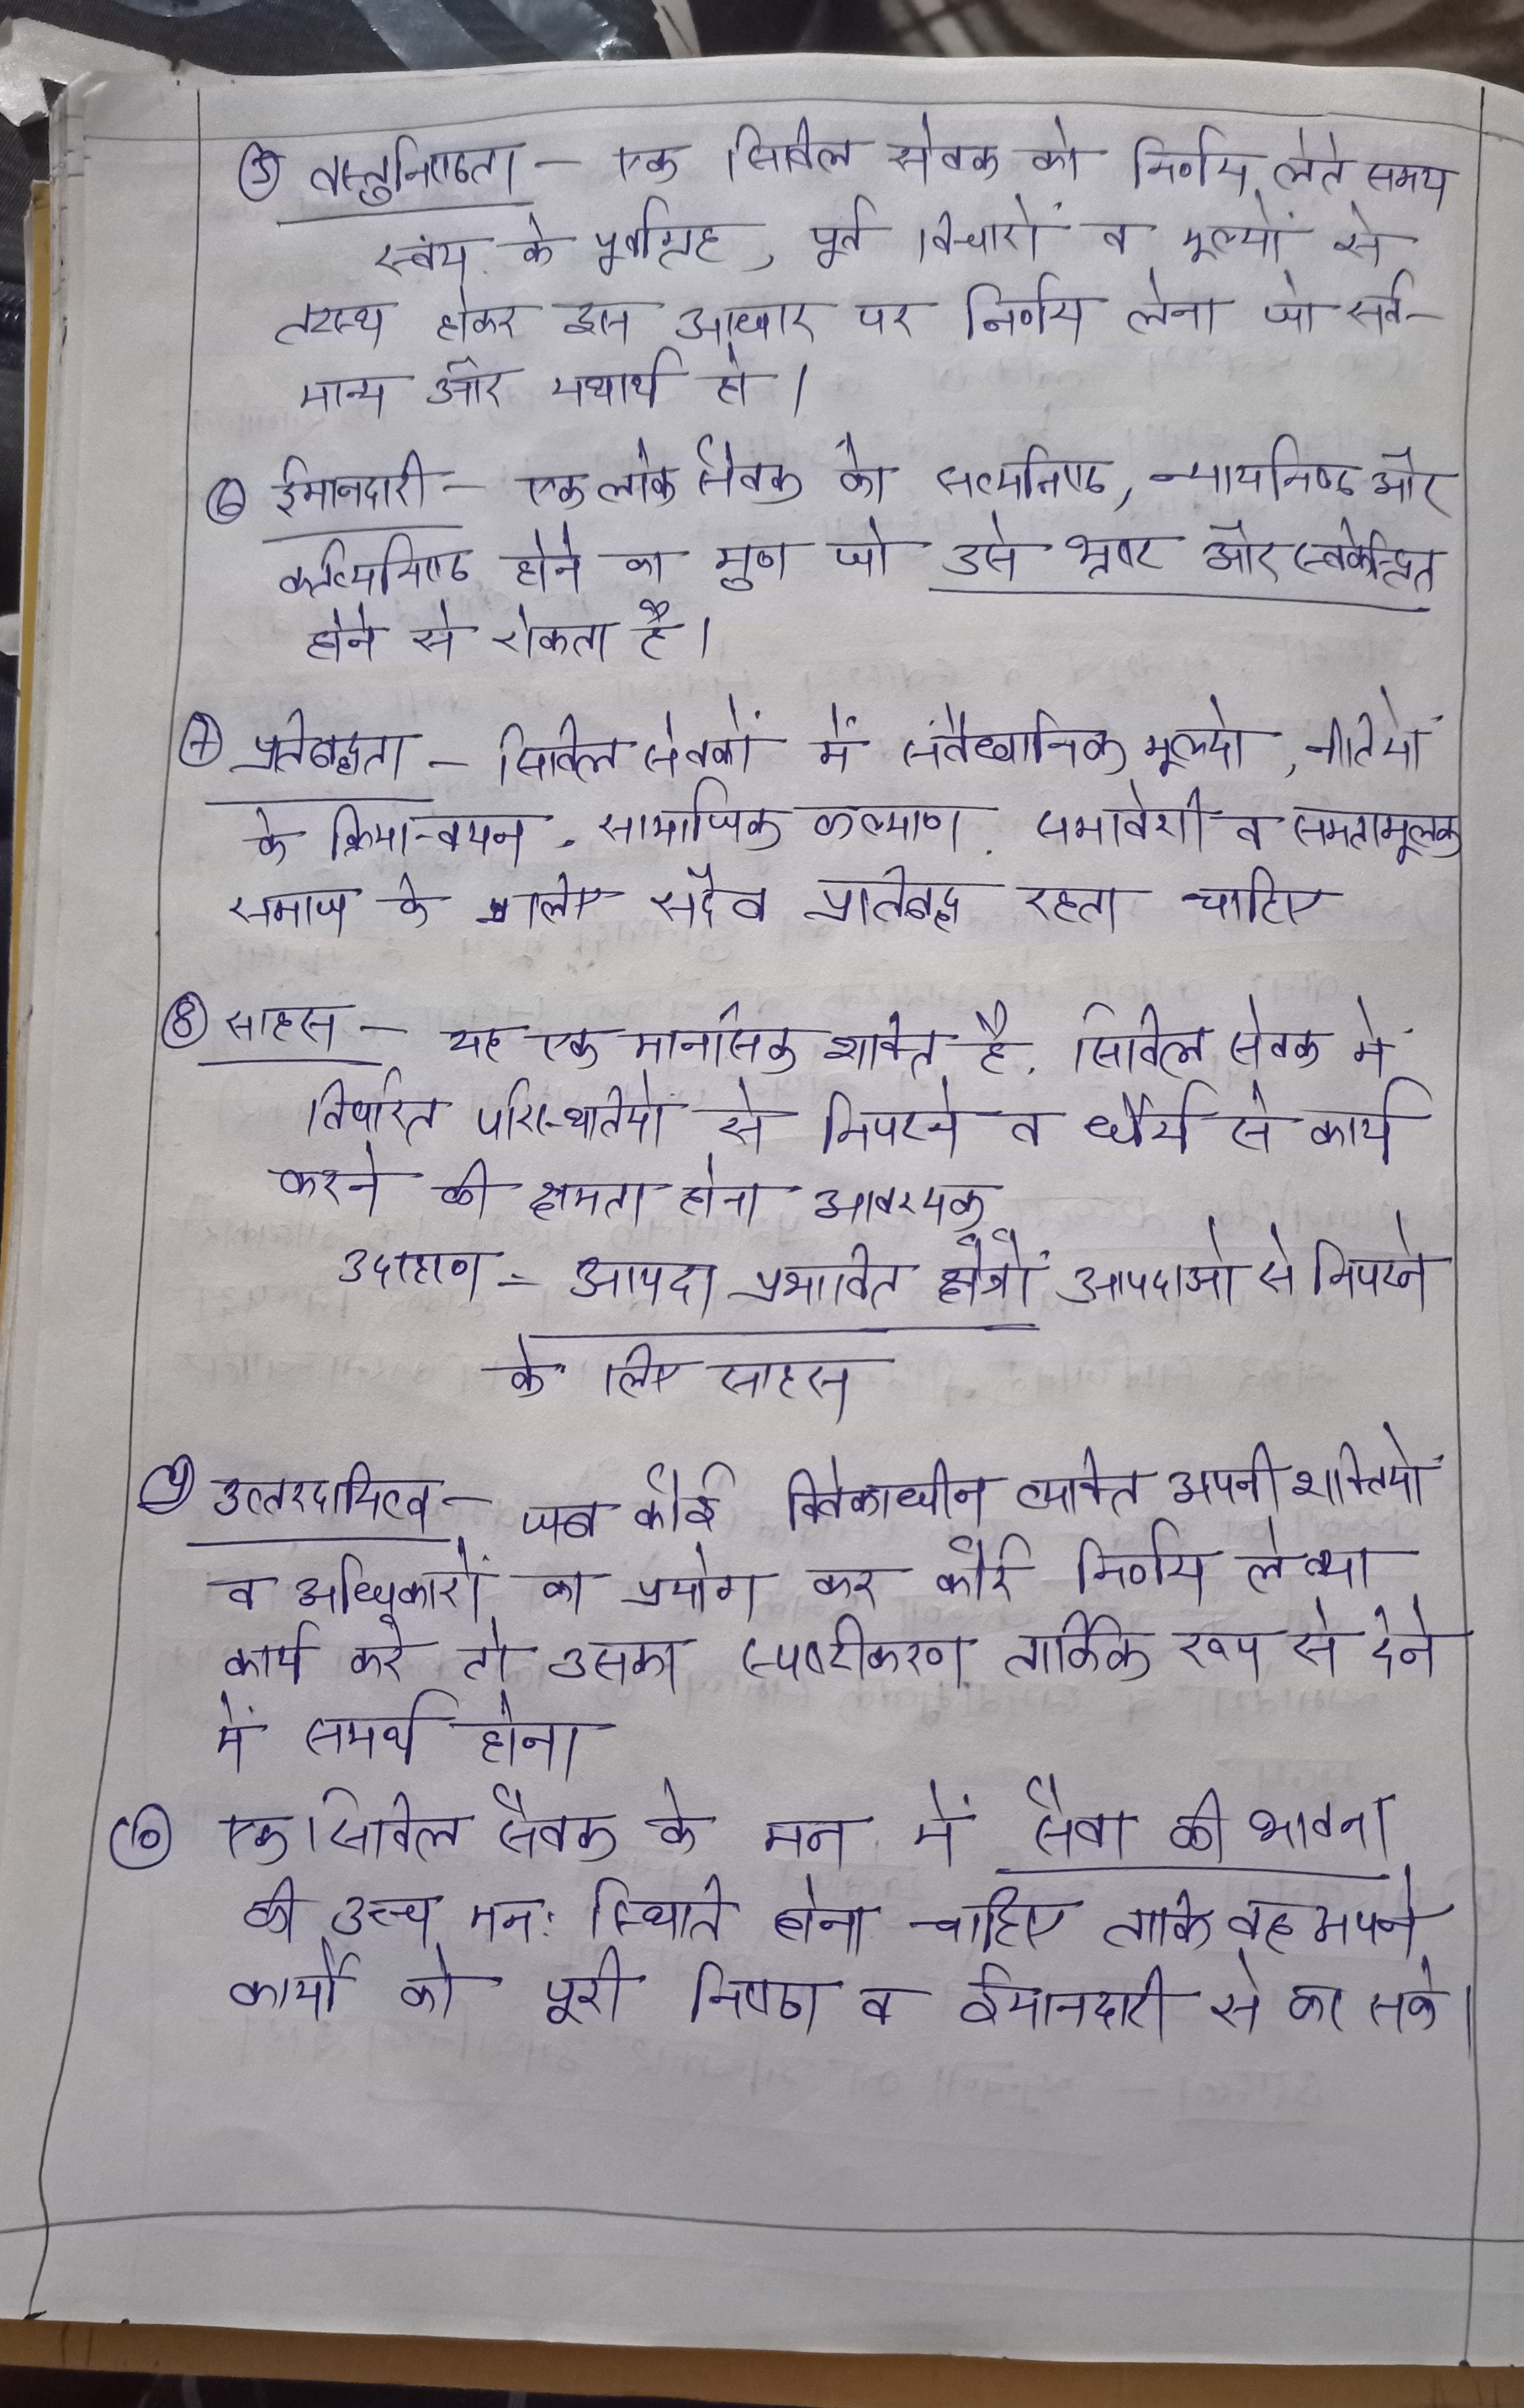 ⑤ वस्तुनिष्ठता - एक सिविल सेवक को निर्णय लेते समय
स्वंय के पूर्वाग्रह, पूर्व विचारों व मूल्यों से
तटस्थ होकर इस आधार पर निर्णय लेना जो सर्व-
मान्य और यथार्थ हो।
⑥ ईमानदारी - एक लोक सेवक को सत्यनिष्ठ, न्यायनिष्ठ और
कर्तव्यनिष्ठ होने का गुण जो उसे भ्रष्ट और स्वकेन्द्रित
होने से रोकता है।
⑦ प्रतिबद्धता - सिविल सेवकों में संवैधानिक मूल्यो, नीतियों
के क्रियान्वयन, सामाजिक कल्याण, समावेशी व समतामूलक
समाज के लिए सदैव प्रतिबद्ध रहता चाहिए
⑧ साहस - यह एक मानसिक शक्ति है. सिविल सेवक में
परिस्थितियों से निपटने व धैर्य से कार्य
करने की क्षमता होना आवश्यक
उदाहरण - आपदा प्रभावित क्षेत्रों आपदाओ से निपटने
के लिए साहस
⑨ उत्तरदायित्व - जब कोई विवेकाधीन व्यक्ति अपनी शक्तियों
व अधिकारों का प्रयोग कर कोई निर्णय ले व्या
कार्य करे तो उसका स्पष्टीकरण तार्किक रूप से देने
में समर्थ होना
⑩ एक सिविल सेवक के मन में सेवा की भावना
की उच्च मनः स्थिति होना चाहिए ताकि वह अपने
कार्यों को पूरी निष्ठा व ईमानदारी से कर सके।